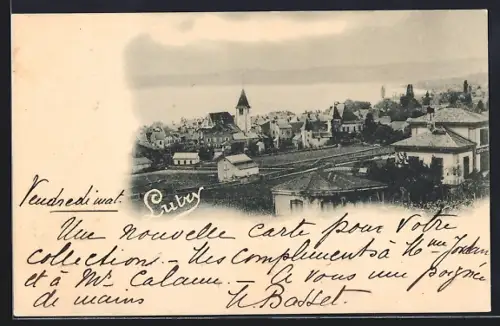 Vendredi mat.
Lutry
Une nouvelle carte pour votre
collection. - Mes compliments à Mme Jordan
et à Mr. Calame. - A vous une poignée
de mains H. Basset.